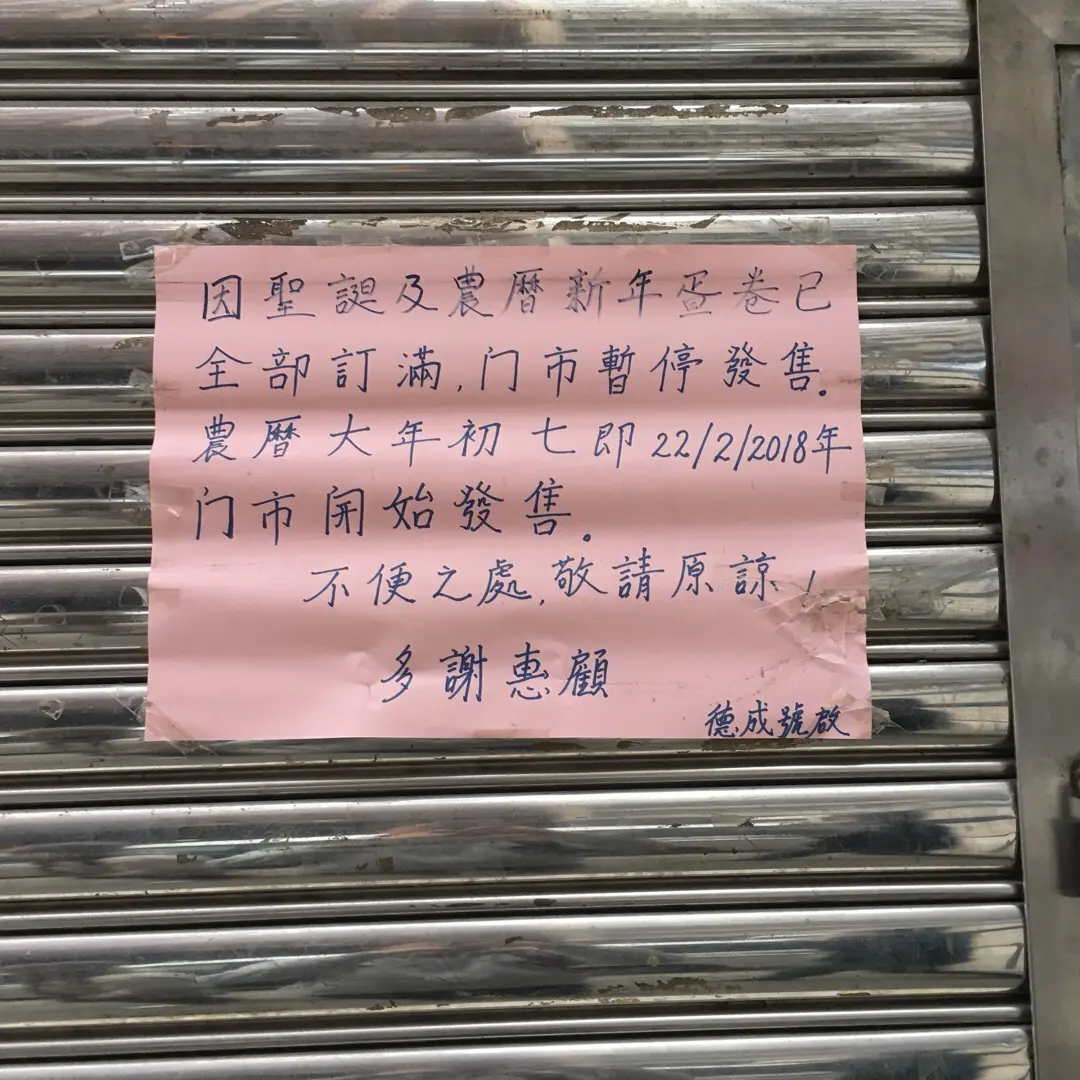 因聖誕及農曆新年蛋卷已
全部訂滿,门市暫停發售。
農曆大年初七即22/2/2018年
门市開始發售。
不便之處,敬請原諒!
多謝惠顧
德成號啟